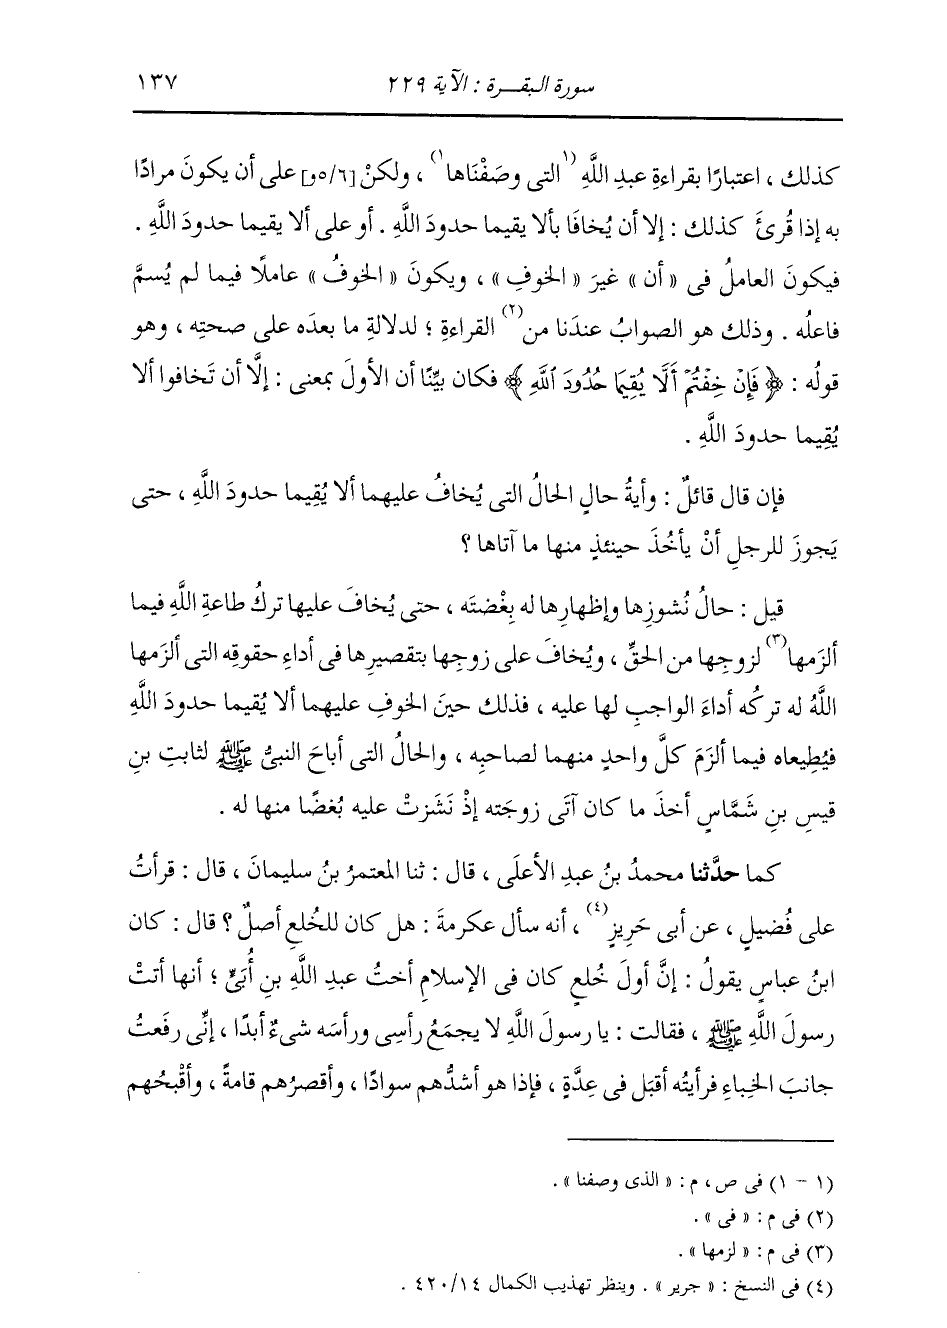 سورة البقرة : الآية ٢٢٩ ١٣٧
كذلك ، اعتبارًا بقراءةِ عبدِ اللَّهِ (١ التى وصَفْنَاها١) ، ولكنْ [٥/٦و] على أن يكونَ مرادًا
به إذا قُرئَ كذلك : إلا أن يُخافَا بألا يقيما حدودَ اللَّهِ . أو على ألا يقيما حدودَ اللَّهِ .
فيكونَ العاملُ فى « أن » غيرَ « الخوفِ » ، ويكونَ « الخوفُ » عاملًا فيما لم يُسمَّ
فاعلُه . وذلك هو الصوابُ عندَنا من(٢) القراءةِ ؛ لدلالةِ ما بعدَه على صحتِه ، وهو
قولُه : ﴿ فَإِنْ خِفْتُمْ أَلَّا يُقِيمَا حُدُودَ ٱللَّهِ ﴾ فكان بيِّنًا أن الأولَ بمعنى : إلَّا أن تَخافوا ألا
يُقِيما حدودَ اللَّهِ .
فإن قال قائلٌ : وأيةُ حالٍ الحالُ التى يُخافُ عليهما ألا يُقِيما حدودَ اللَّهِ ، حتى
يَجوزَ للرجلِ أنْ يأخُذَ حينئذٍ منها ما آتاها ؟
قيل : حالُ نُشوزِها وإظهارِها له بِغْضتَه ، حتى يُخافَ عليها تركُ طاعةِ اللَّهِ فيما
ألزَمها(٣) لزوجِها من الحقِّ ، ويُخافَ على زوجِها بتقصيرِها فى أداءِ حقوقِه التى ألزَمها
اللَّهُ له تركُه أداءَ الواجبِ لها عليه ، فذلك حينَ الخوفِ عليهما ألا يُقيما حدودَ اللَّهِ
فيُطِيعاه فيما ألزَمَ كلَّ واحدٍ منهما لصاحبِه ، والحالُ التى أباحَ النبىُّ ﷺ لثابتِ بنِ
قيسِ بنِ شَمَّاسٍ أخذَ ما كان آتَى زوجتَه إذْ نَشَزتْ عليه بُغضًا منها له .
كما حدَّثنا محمدُ بنُ عبدِ الأعلَى ، قال : ثنا المعتمرُ بنُ سليمانَ ، قال : قرأتُ
على فُضيلٍ ، عن أبى حَرِيزٍ(٤) ، أنه سأل عكرمةَ : هل كان للخُلعِ أصلٌ ؟ قال : كان
ابنُ عباسٍ يقولُ : إنَّ أولَ خُلعٍ كان فى الإسلامِ أختُ عبدِ اللَّهِ بنِ أُبَىٍّ ؛ أنها أتتْ
رسولَ اللَّهِ ﷺ ، فقالت : يا رسولَ اللَّهِ لا يجمَعُ رأسِى ورأسَه شىءٌ أبدًا ، إنِّى رفَعتُ
جانبَ الخِباءِ فرأيتُه أقبَل فى عِدَّةٍ ، فإذا هو أشدُّهم سوادًا ، وأقصرُهم قامةً ، وأقْبحُهم
(١ - ١) فى ص ، م : « الذى وصفنا » .
(٢) فى م : « فى » .
(٣) فى م : « لزمها » .
(٤) فى النسخ : « جرير » . وينظر تهذيب الكمال ٤٢٠/١٤ .